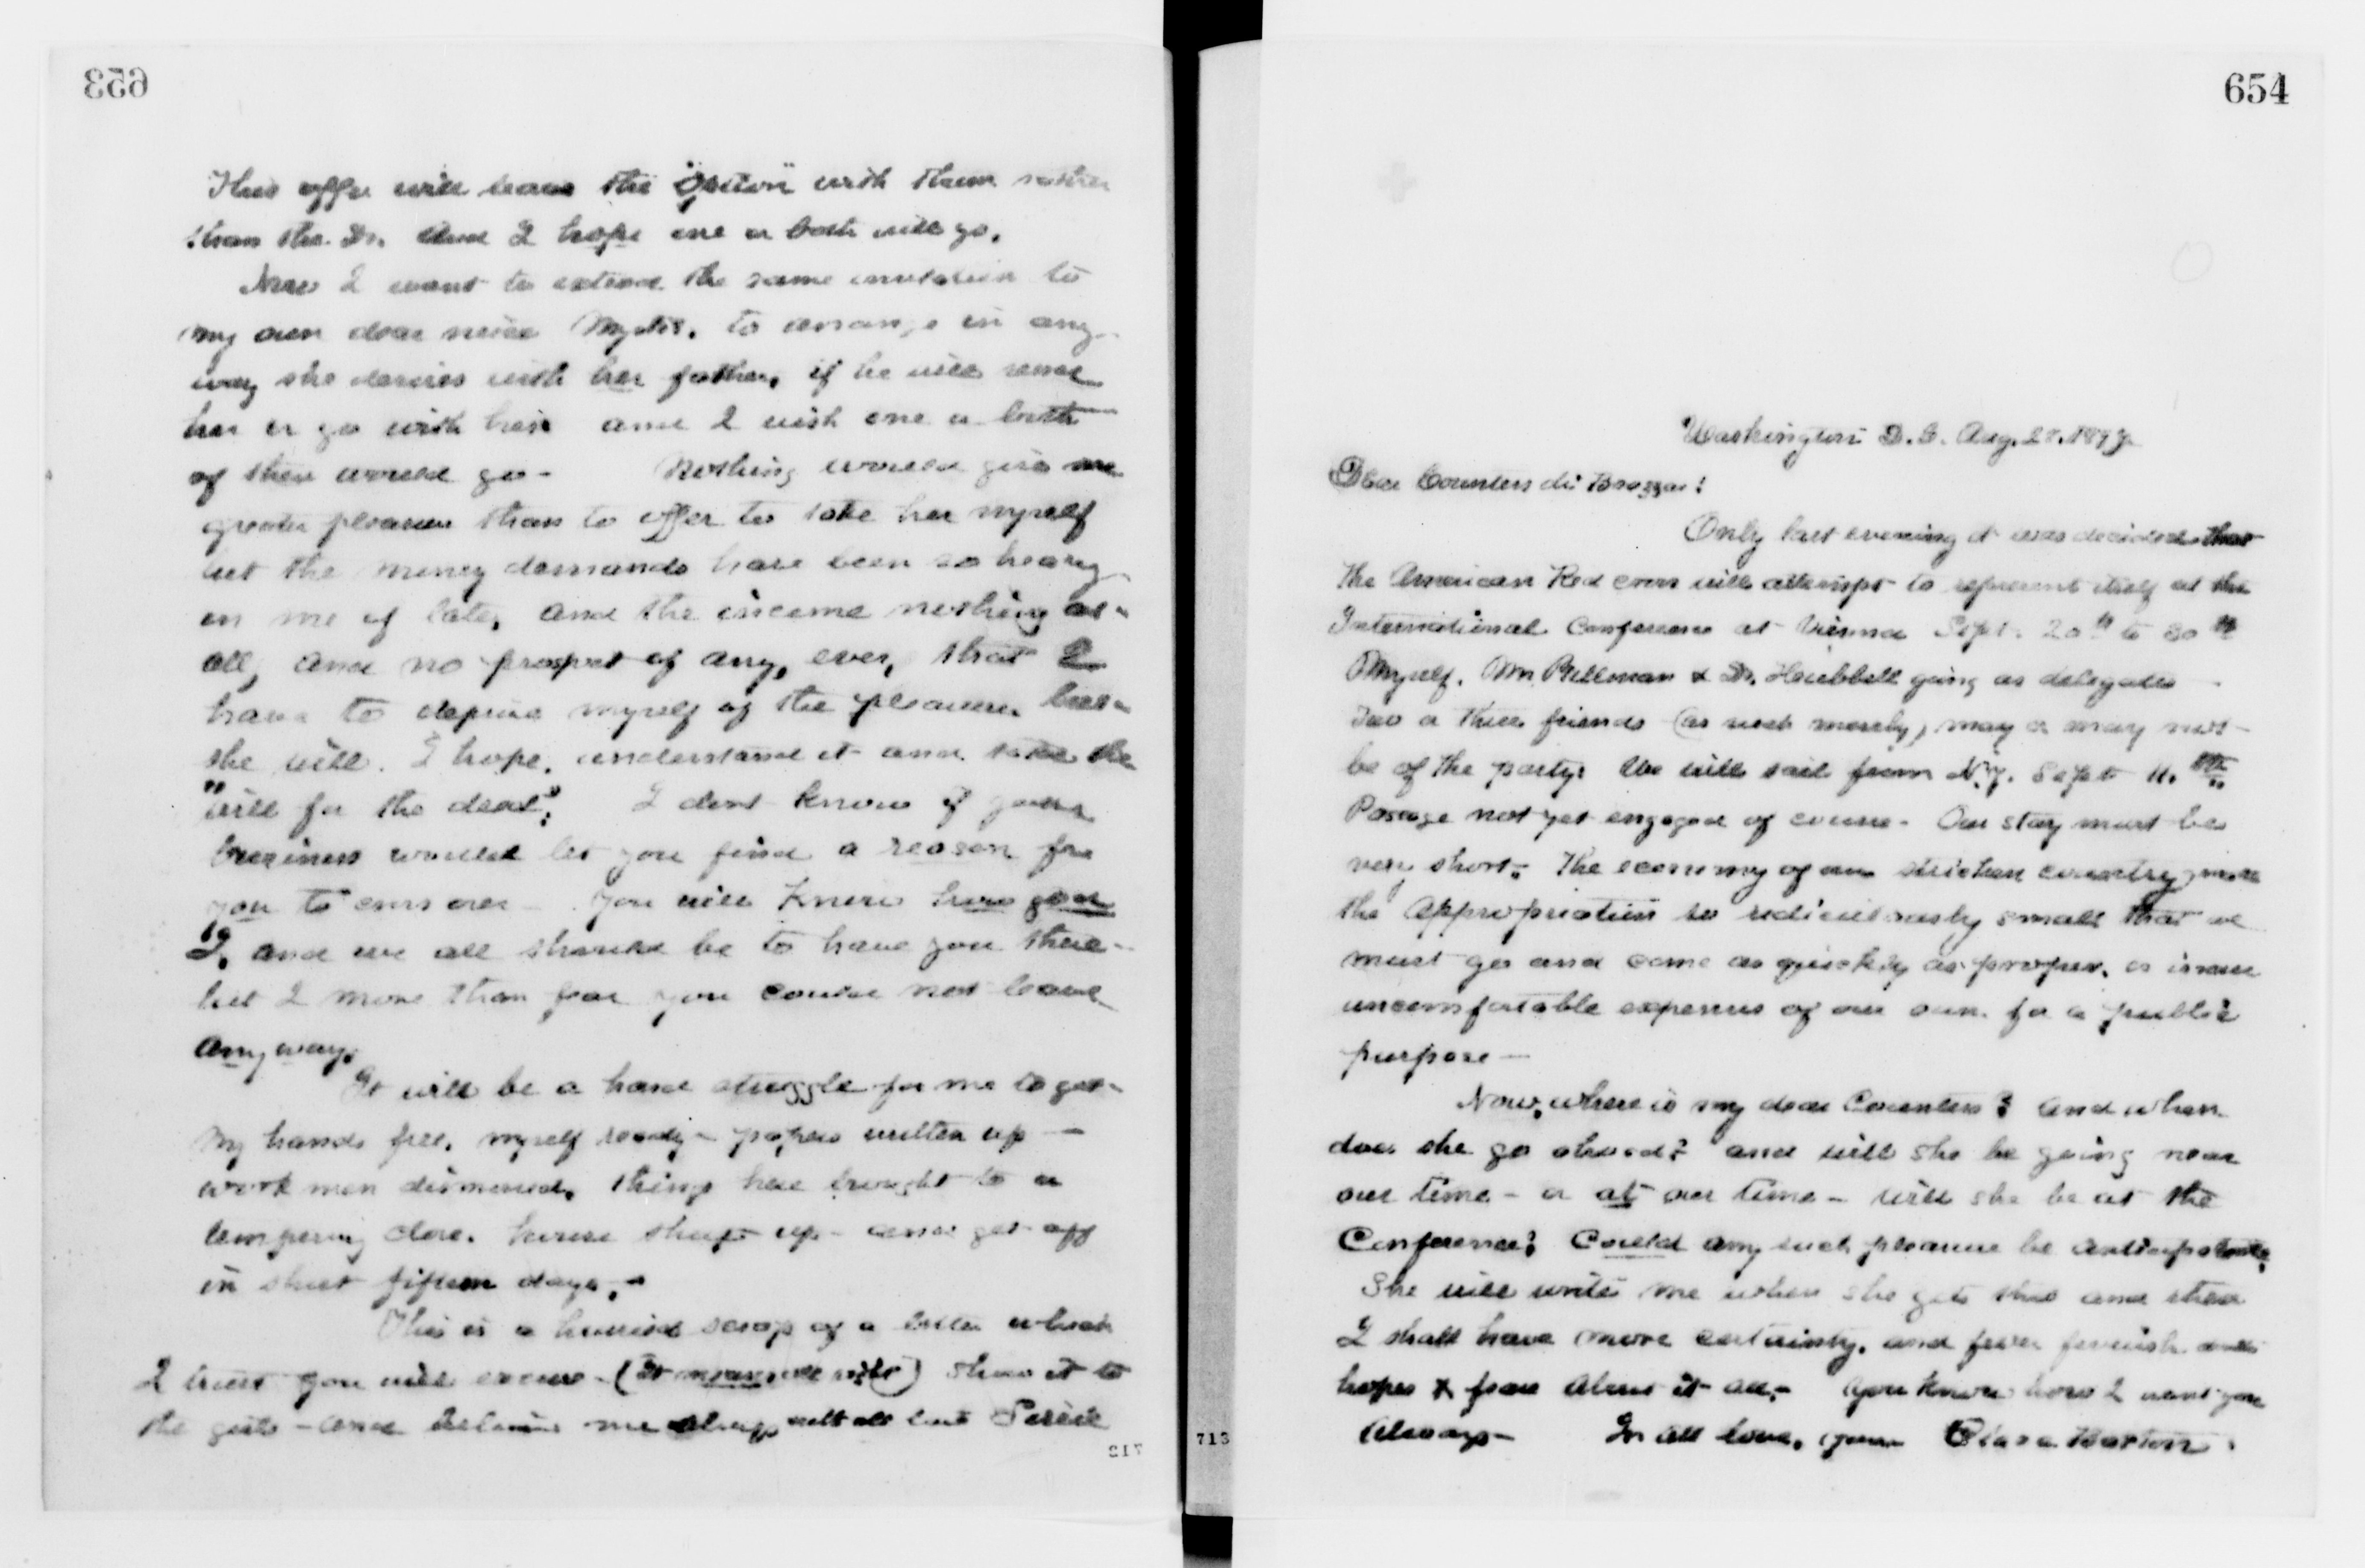 653
This offer will leave the "option" with them rather
than the Dr. And I hope one or both will go.
Now I want to extend the same invitation to
my own dear niece Myrtis. to arrange in any
way she desires with her father, if he will send
her or go with her and I wish one or both
of them would go - Nothing would give me
greater pleasure than to offer to take her myself
but the money demands have been so heavy
on me of late, and the income nothing at
all, and no prospect of any, ever, that I
have to deprive myself of the pleasure but
she will. I hope. understand it and take the
"will for the deed". I dont know if your
business would let you find a reason for
you to come over - You will know how glad
I, and we all should be to have you there -
but I more than fear you could not leave
any way.
It will be a hard struggle for me to get
my hands free, myself ready - papers written up -
work men dismissed, things here brought to a
temporary close. house shut up - and get off
in short fifteen days. -
This is a hurried scrap of a letter which
I trust you will excuse - (It means all right) Show it to
the girls - and believe me always with all love
217
654
Washington D.C. Aug. 27. 1897
Dear Countess di Brazza:
Only last evening it was decided that
the American Red Cross will attempt to represent itself at the
International Conference at Vienna Sept. 20th to 30th
Myself, Mr Pullman & Dr. Hubbell going as delegates -
Two or three friends (as such merely) may or may not
be of the party. We will sail from N.Y. Sept 11.th
Passage not yet engaged of course - Our stay must be
very short. The economy of our stricken country made
the appropriation so rediculously small that we
must go and come as quickly as proper, or incur
uncomfortable expenses of our own for a public
purpose -
Now, where is my dear Countess? and when
does she go abroad? and will she be going near
our time - or at our time - will she be at the
Conference? Could any such pleasure be anticipated.
She will write me when she gets this and then
I shall have more certainty, and fewer feverish
hopes & fears about it all - You know how I want you
Always - In all love, yours Clara Barton.
713